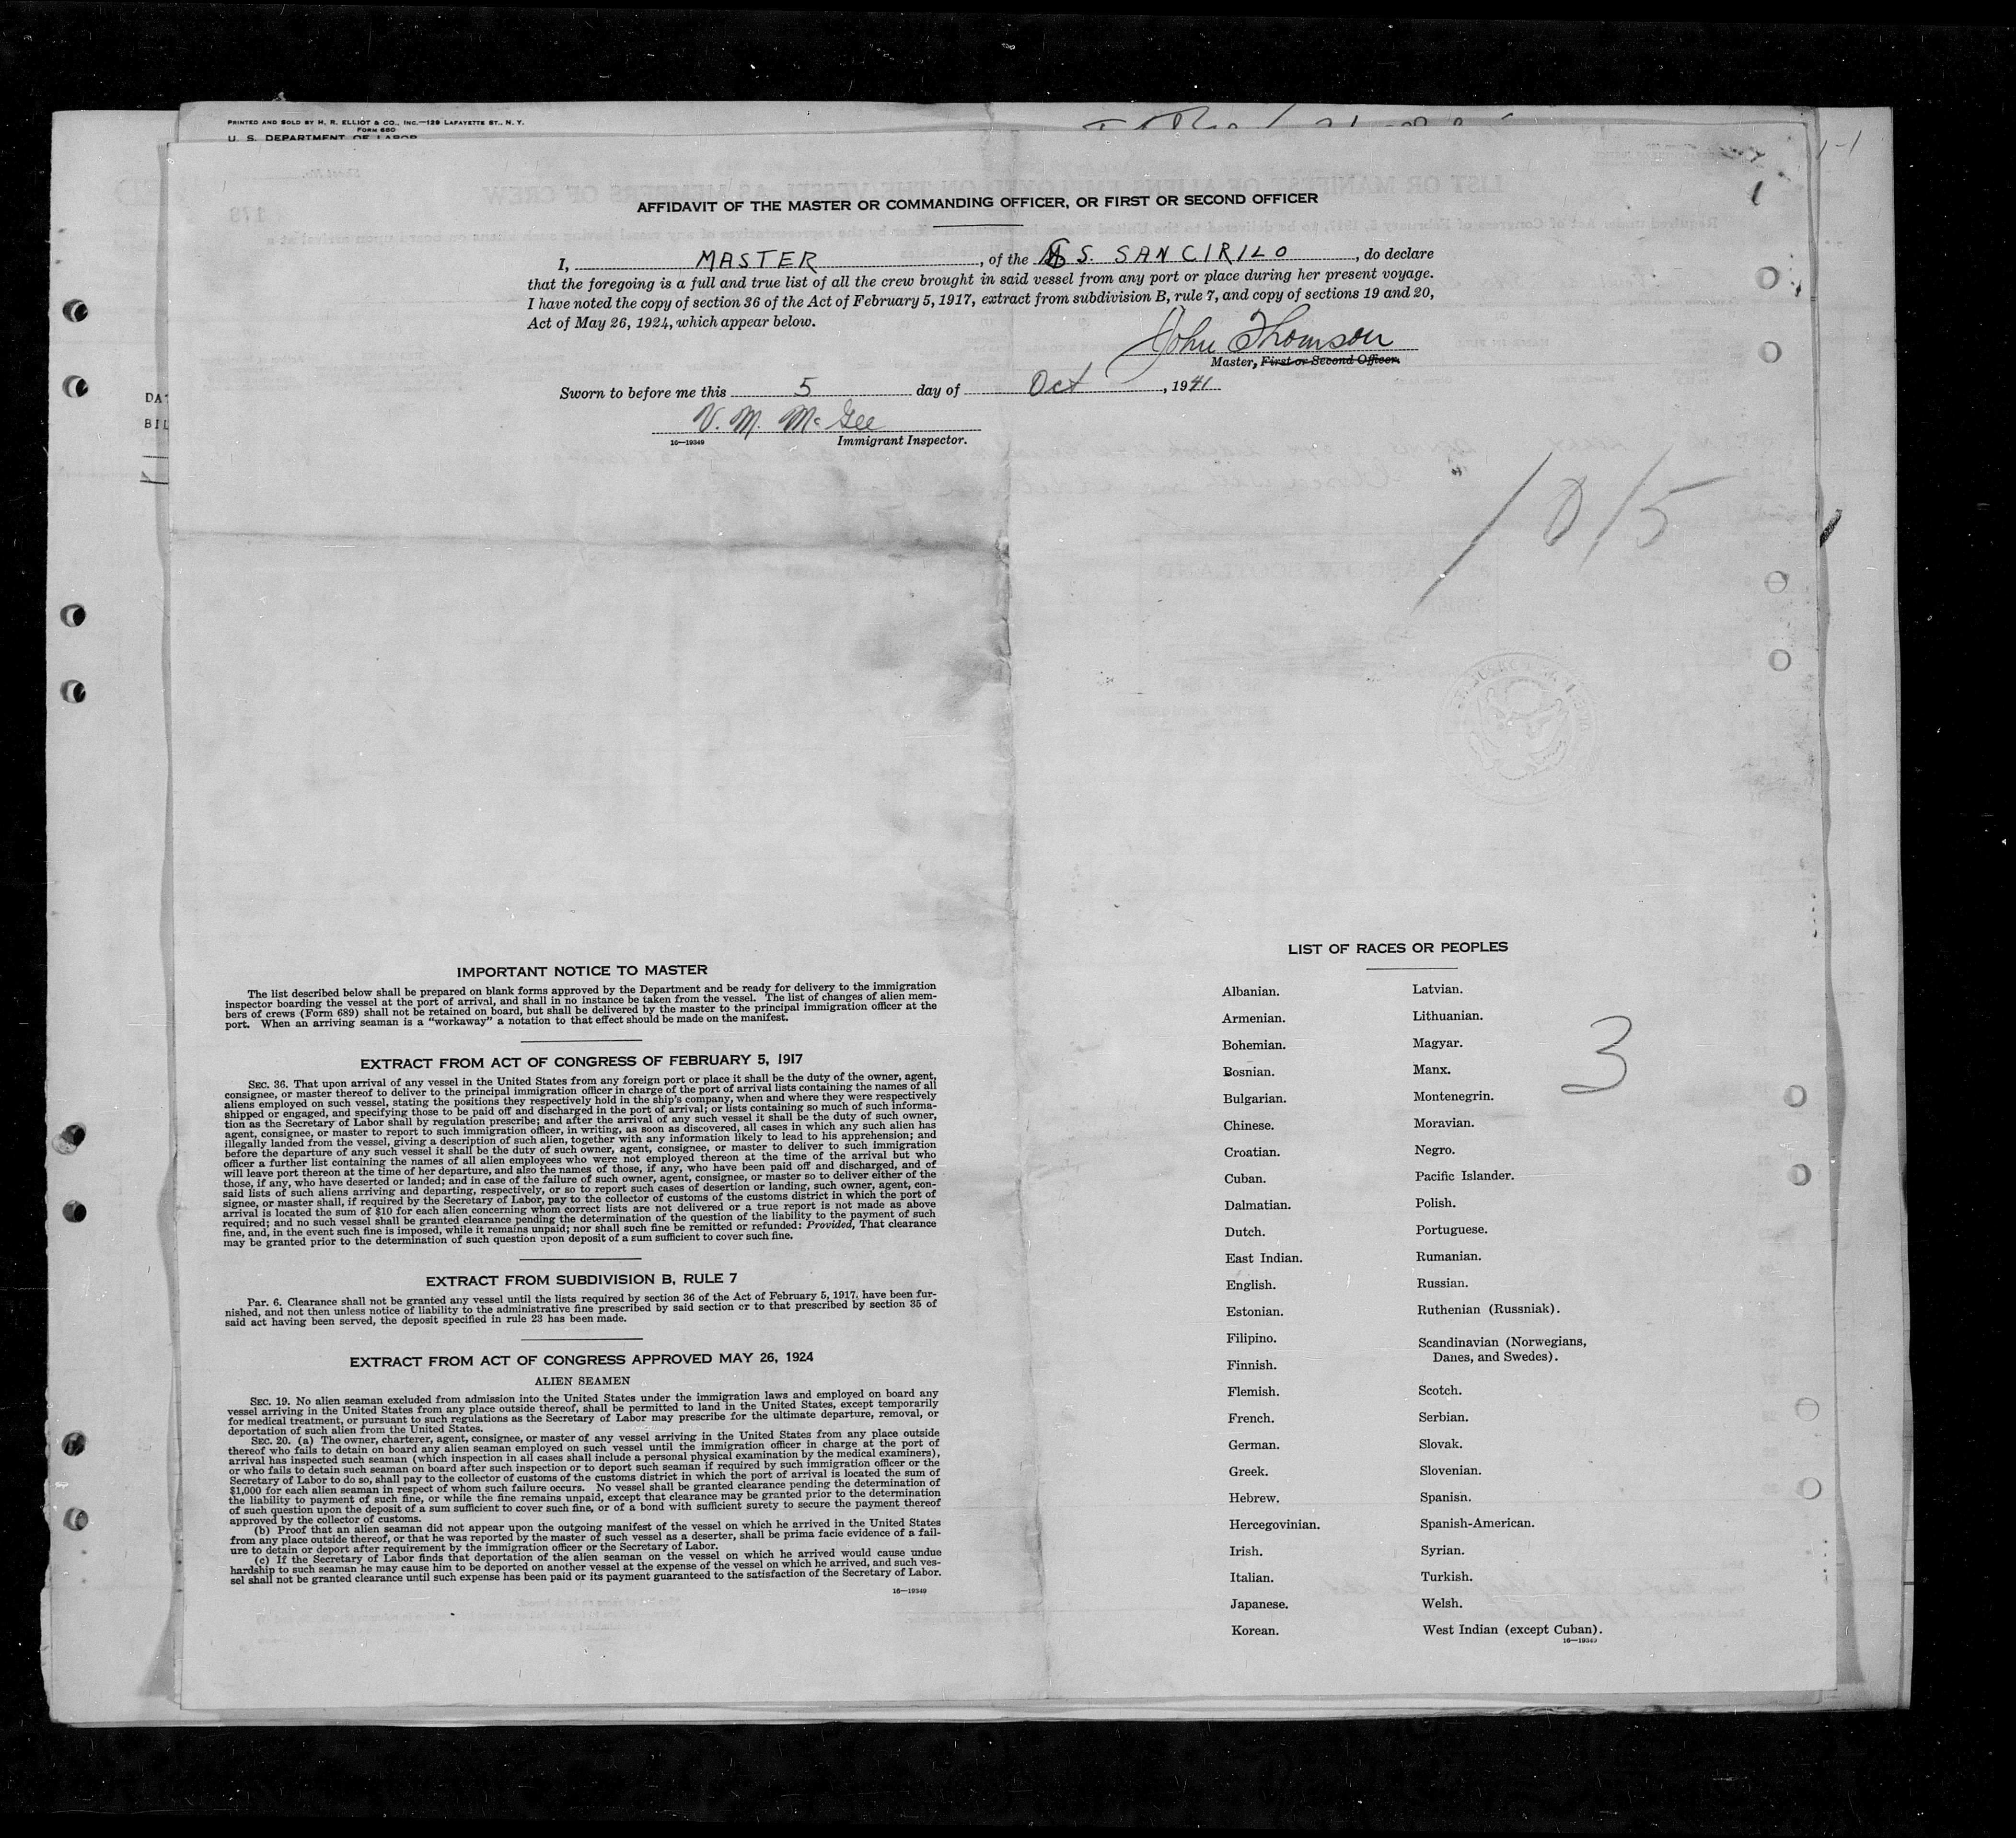 PRINTED AND SOLD BY H. R. ELLIOT & CO., INC.—129 LAFAYETTE ST., N. Y.
FORM 680
U. S. DEPARTMENT OF LABOR
AFFIDAVIT OF THE MASTER OR COMMANDING OFFICER, OR FIRST OR SECOND OFFICER
I, MASTER, of the S. SAN CIRILO, do declare
that the foregoing is a full and true list of all the crew brought in said vessel from any port or place during her present voyage.
I have noted the copy of section 36 of the Act of February 5, 1917, extract from subdivision B, rule 7, and copy of sections 19 and 20,
Act of May 26, 1924, which appear below.
John Thomson
Master, First or Second Officer.
Sworn to before me this 5 day of Oct, 1941
V. M. McGee
16—19349 Immigrant Inspector.
DAT
BIL
1015
IMPORTANT NOTICE TO MASTER
The list described below shall be prepared on blank forms approved by the Department and be ready for delivery to the immigration
inspector boarding the vessel at the port of arrival, and shall in no instance be taken from the vessel. The list of changes of alien mem-
bers of crews (Form 689) shall not be retained on board, but shall be delivered by the master to the principal immigration officer at the
port. When an arriving seaman is a "workaway" a notation to that effect should be made on the manifest.
EXTRACT FROM ACT OF CONGRESS OF FEBRUARY 5, 1917
SEC. 36. That upon arrival of any vessel in the United States from any foreign port or place it shall be the duty of the owner, agent,
consignee, or master thereof to deliver to the principal immigration officer in charge of the port of arrival lists containing the names of all
aliens employed on such vessel, stating the positions they respectively hold in the ship's company, when and where they were respectively
shipped or engaged, and specifying those to be paid off and discharged in the port of arrival; or lists containing so much of such informa-
tion as the Secretary of Labor shall by regulation prescribe; and after the arrival of any such vessel it shall be the duty of such owner,
agent, consignee, or master to report to such immigration officer, in writing, as soon as discovered, all cases in which any such alien has
illegally landed from the vessel, giving a description of such alien, together with any information likely to lead to his apprehension; and
before the departure of any such vessel it shall be the duty of such owner, agent, consignee, or master to deliver to such immigration
officer a further list containing the names of all alien employees who were not employed thereon at the time of the arrival but who
will leave port thereon at the time of her departure, and also the names of those, if any, who have been paid off and discharged, and of
those, if any, who have deserted or landed; and in case of the failure of such owner, agent, consignee, or master so to deliver either of the
said lists of such aliens arriving and departing, respectively, or so to report such cases of desertion or landing, such owner, agent, con-
signee, or master shall, if required by the Secretary of Labor, pay to the collector of customs of the customs district in which the port of
arrival is located the sum of $10 for each alien concerning whom correct lists are not delivered or a true report is not made as above
required; and no such vessel shall be granted clearance pending the determination of the question of the liability to the payment of such
fine, and, in the event such fine is imposed, while it remains unpaid; nor shall such fine be remitted or refunded: Provided, That clearance
may be granted prior to the determination of such question upon deposit of a sum sufficient to cover such fine.
EXTRACT FROM SUBDIVISION B, RULE 7
Par. 6. Clearance shall not be granted any vessel until the lists required by section 36 of the Act of February 5, 1917, have been fur-
nished, and not then unless notice of liability to the administrative fine prescribed by said section or to that prescribed by section 35 of
said act having been served, the deposit specified in rule 23 has been made.
EXTRACT FROM ACT OF CONGRESS APPROVED MAY 26, 1924
ALIEN SEAMEN
SEC. 19. No alien seaman excluded from admission into the United States under the immigration laws and employed on board any
vessel arriving in the United States from any place outside thereof, shall be permitted to land in the United States, except temporarily
for medical treatment, or pursuant to such regulations as the Secretary of Labor may prescribe for the ultimate departure, removal, or
deportation of such alien from the United States.
SEC. 20. (a) The owner, charterer, agent, consignee, or master of any vessel arriving in the United States from any place outside
thereof who fails to detain on board any alien seaman employed on such vessel until the immigration officer in charge at the port of
arrival has inspected such seaman (which inspection in all cases shall include a personal physical examination by the medical examiners),
or who fails to detain such seaman on board after such inspection or to deport such seaman if required by such immigration officer or the
Secretary of Labor to do so, shall pay to the collector of customs of the customs district in which the port of arrival is located the sum of
$1,000 for each alien seaman in respect of whom such failure occurs. No vessel shall be granted clearance pending the determination of
the liability to payment of such fine, or while the fine remains unpaid, except that clearance may be granted prior to the determination
of such question upon the deposit of a sum sufficient to cover such fine, or of a bond with sufficient surety to secure the payment thereof
approved by the collector of customs.
(b) Proof that an alien seaman did not appear upon the outgoing manifest of the vessel on which he arrived in the United States
from any place outside thereof, or that he was reported by the master of such vessel as a deserter, shall be prima facie evidence of a fail-
ure to detain or deport after requirement by the immigration officer or the Secretary of Labor.
(c) If the Secretary of Labor finds that deportation of the alien seaman on the vessel on which he arrived would cause undue
hardship to such seaman he may cause him to be deported on another vessel at the expense of the vessel on which he arrived, and such ves-
sel shall not be granted clearance until such expense has been paid or its payment guaranteed to the satisfaction of the Secretary of Labor.
16—19349
LIST OF RACES OR PEOPLES
3
Albanian. Latvian.
Armenian. Lithuanian.
Bohemian. Magyar.
Bosnian. Manx.
Bulgarian. Montenegrin.
Chinese. Moravian.
Croatian. Negro.
Cuban. Pacific Islander.
Dalmatian. Polish.
Dutch. Portuguese.
East Indian. Rumanian.
English. Russian.
Estonian. Ruthenian (Russniak).
Filipino. Scandinavian (Norwegians,
Danes, and Swedes).
Finnish.
Flemish. Scotch.
French. Serbian.
German. Slovak.
Greek. Slovenian.
Hebrew. Spanish.
Hercegovinian. Spanish-American.
Irish. Syrian.
Italian. Turkish.
Japanese. Welsh.
Korean. West Indian (except Cuban).
16—19349